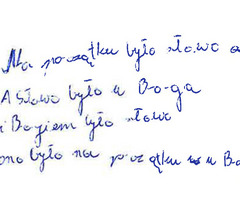 Na początku było słowo a
A słowo było u Bo-ga
i Bogiem było słowo
ono było na początku u Bo